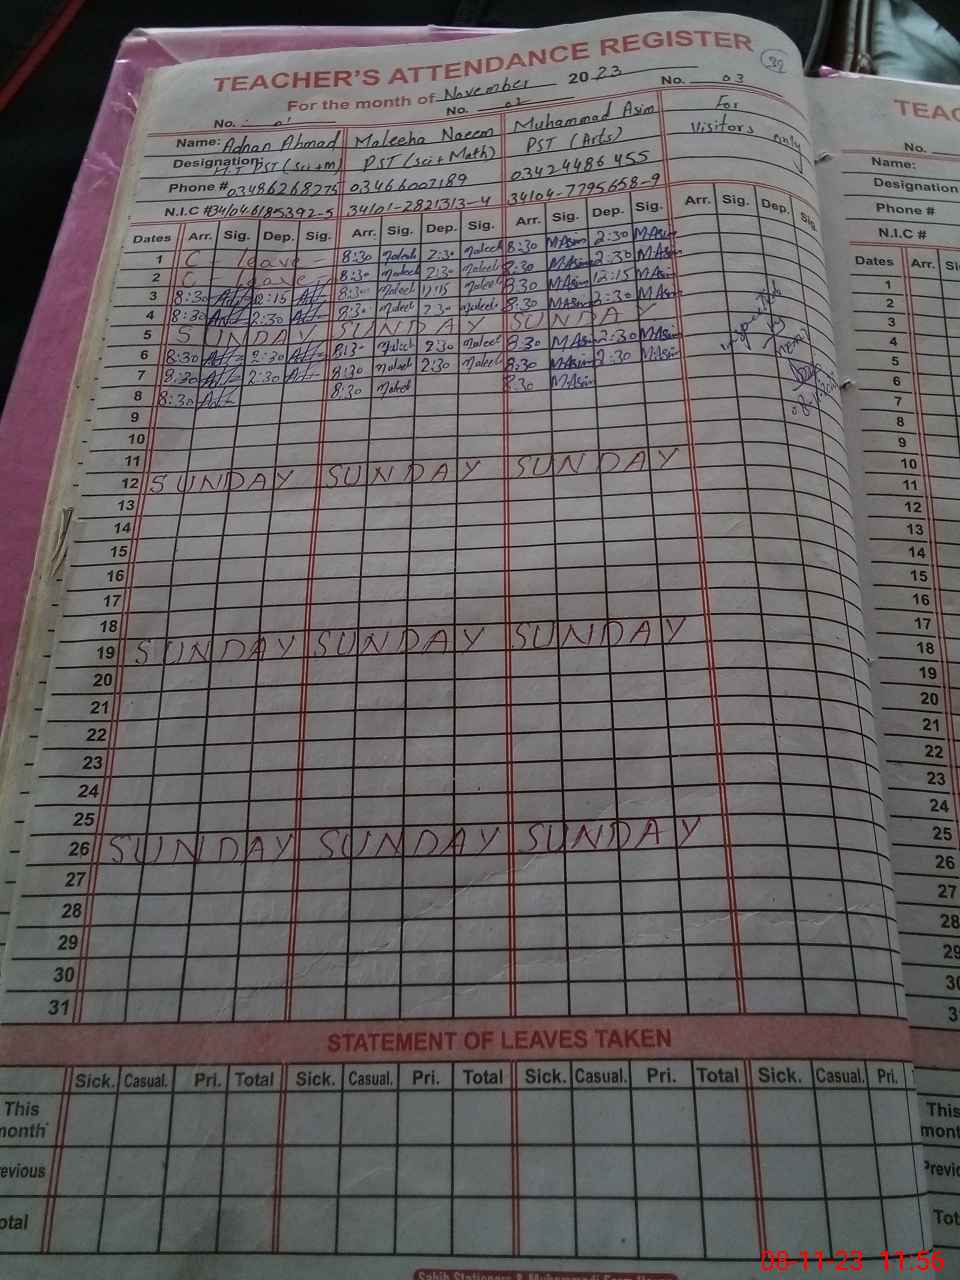 TEACHER'S ATTENDANCE REGISTER
For the month of November 2023
No. 01 No. 02 No. 03 For
Name: Adnan Ahmad Maleeha Naeem Muhammad Asim Visitors only
Designation: H.T PST (Sci+m) PST (sci+Math) PST (Arts)
Phone # 03486268275 03466007189 03424486455
N.I.C # 34104-6185392-5 34101-2821313-4 34104-7795658-9
Dates Arr. Sig. Dep. Sig. Arr. Sig. Dep. Sig. Arr. Sig. Dep. Sig. Arr. Sig. Dep. Sig.
1 C - leave - 8:30 Maleeh 2:30 Maleeh 8:30 MAsim 2:30 MAsim
2 C - leave - 8:30 Maleeh 2:30 Maleeh 8:30 MAsim 12:15 MAsim
3 8:30 12:15 8:30 Maleeh 12:15 Maleeh 8:30 MAsim 2:30 MAsim
4 8:30 2:30 8:30 Maleeh 2:30 Maleeh 8:30 MAsim
5 SUNDAY SUNDAY SUNDAY
6 8:30 2:30 8:30 Maleeh 2:30 Maleeh 8:30 MAsim 2:30 MAsim
7 8:30 2:30 8:30 Maleeh 2:30 Maleeh 8:30 MAsim 2:30 MAsim
8 8:30 8:30 Maleeh 8:30 MAsim
9
10
11
12 SUNDAY SUNDAY SUNDAY
13
14
15
16
17
18
19 SUNDAY SUNDAY SUNDAY
20
21
22
23
24
25
26 SUNDAY SUNDAY SUNDAY
27
28
29
30
31
STATEMENT OF LEAVES TAKEN
Sick. Casual. Pri. Total Sick. Casual. Pri. Total Sick. Casual. Pri. Total Sick. Casual. Pri.
This
month
evious
otal
TEAC
No.
Name:
Designation
Phone #
N.I.C #
Dates Arr. S
1
2
3
4
5
6
7
8
9
10
11
12
13
14
15
16
17
18
19
20
21
22
23
24
25
26
27
28
29
30
3
This
mont
Previ
Tot
08-11-23 11:56